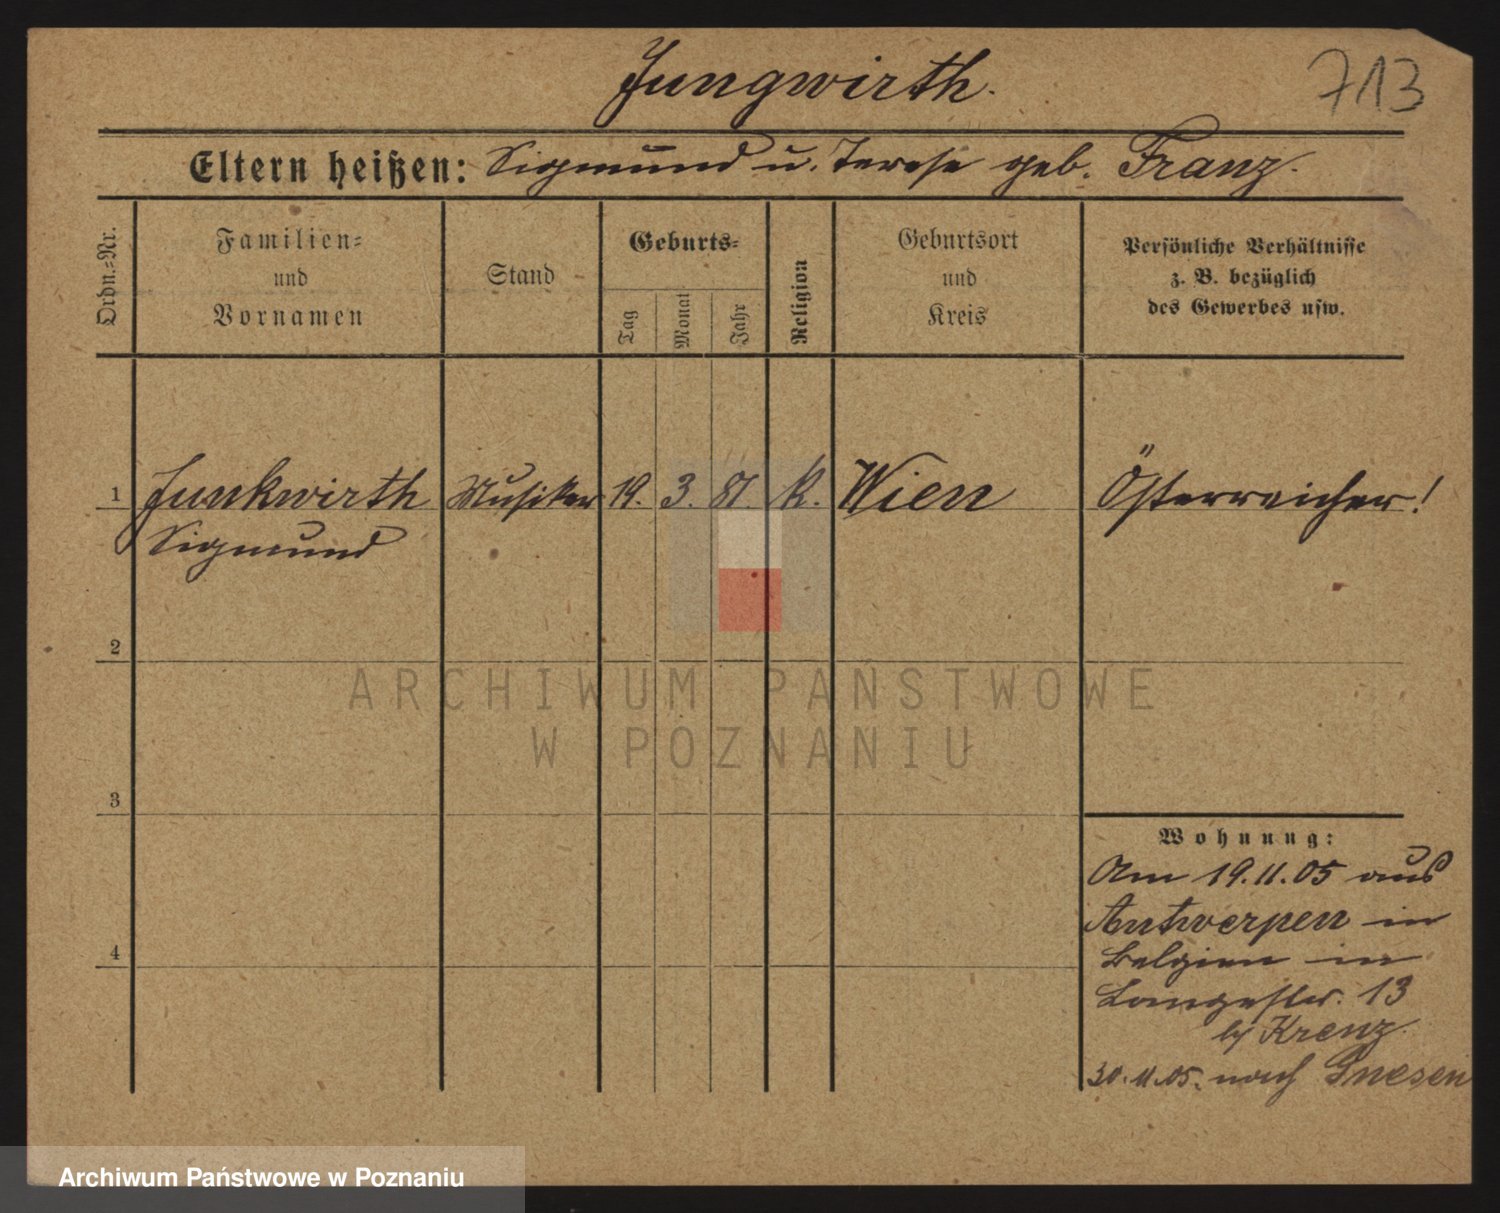 Jungwirth.
713
Eltern heißen: Sigmund u. Terese geb. Franz.
Ordn.-Nr.
Familien-
und
Vornamen
Stand
Geburts-
Tag
Monat
Jahr
Religion
Geburtsort
und
Kreis
Persönliche Verhältnisse
z. B. bezüglich
des Gewerbes usw.
1 Junkwirth Musiker 19. 3. 81. K. Wien Österreicher!
Sigmund
2
ARCHIWUM PAŃSTWOWE
W POZNANIU
3
Wohnung:
Am 19.11.05 aus
Antwerpen in
Belgien in
Langestr. 13
4
bei Krenz.
30.11.05. nach Gnesen
Archiwum Państwowe w Poznaniu